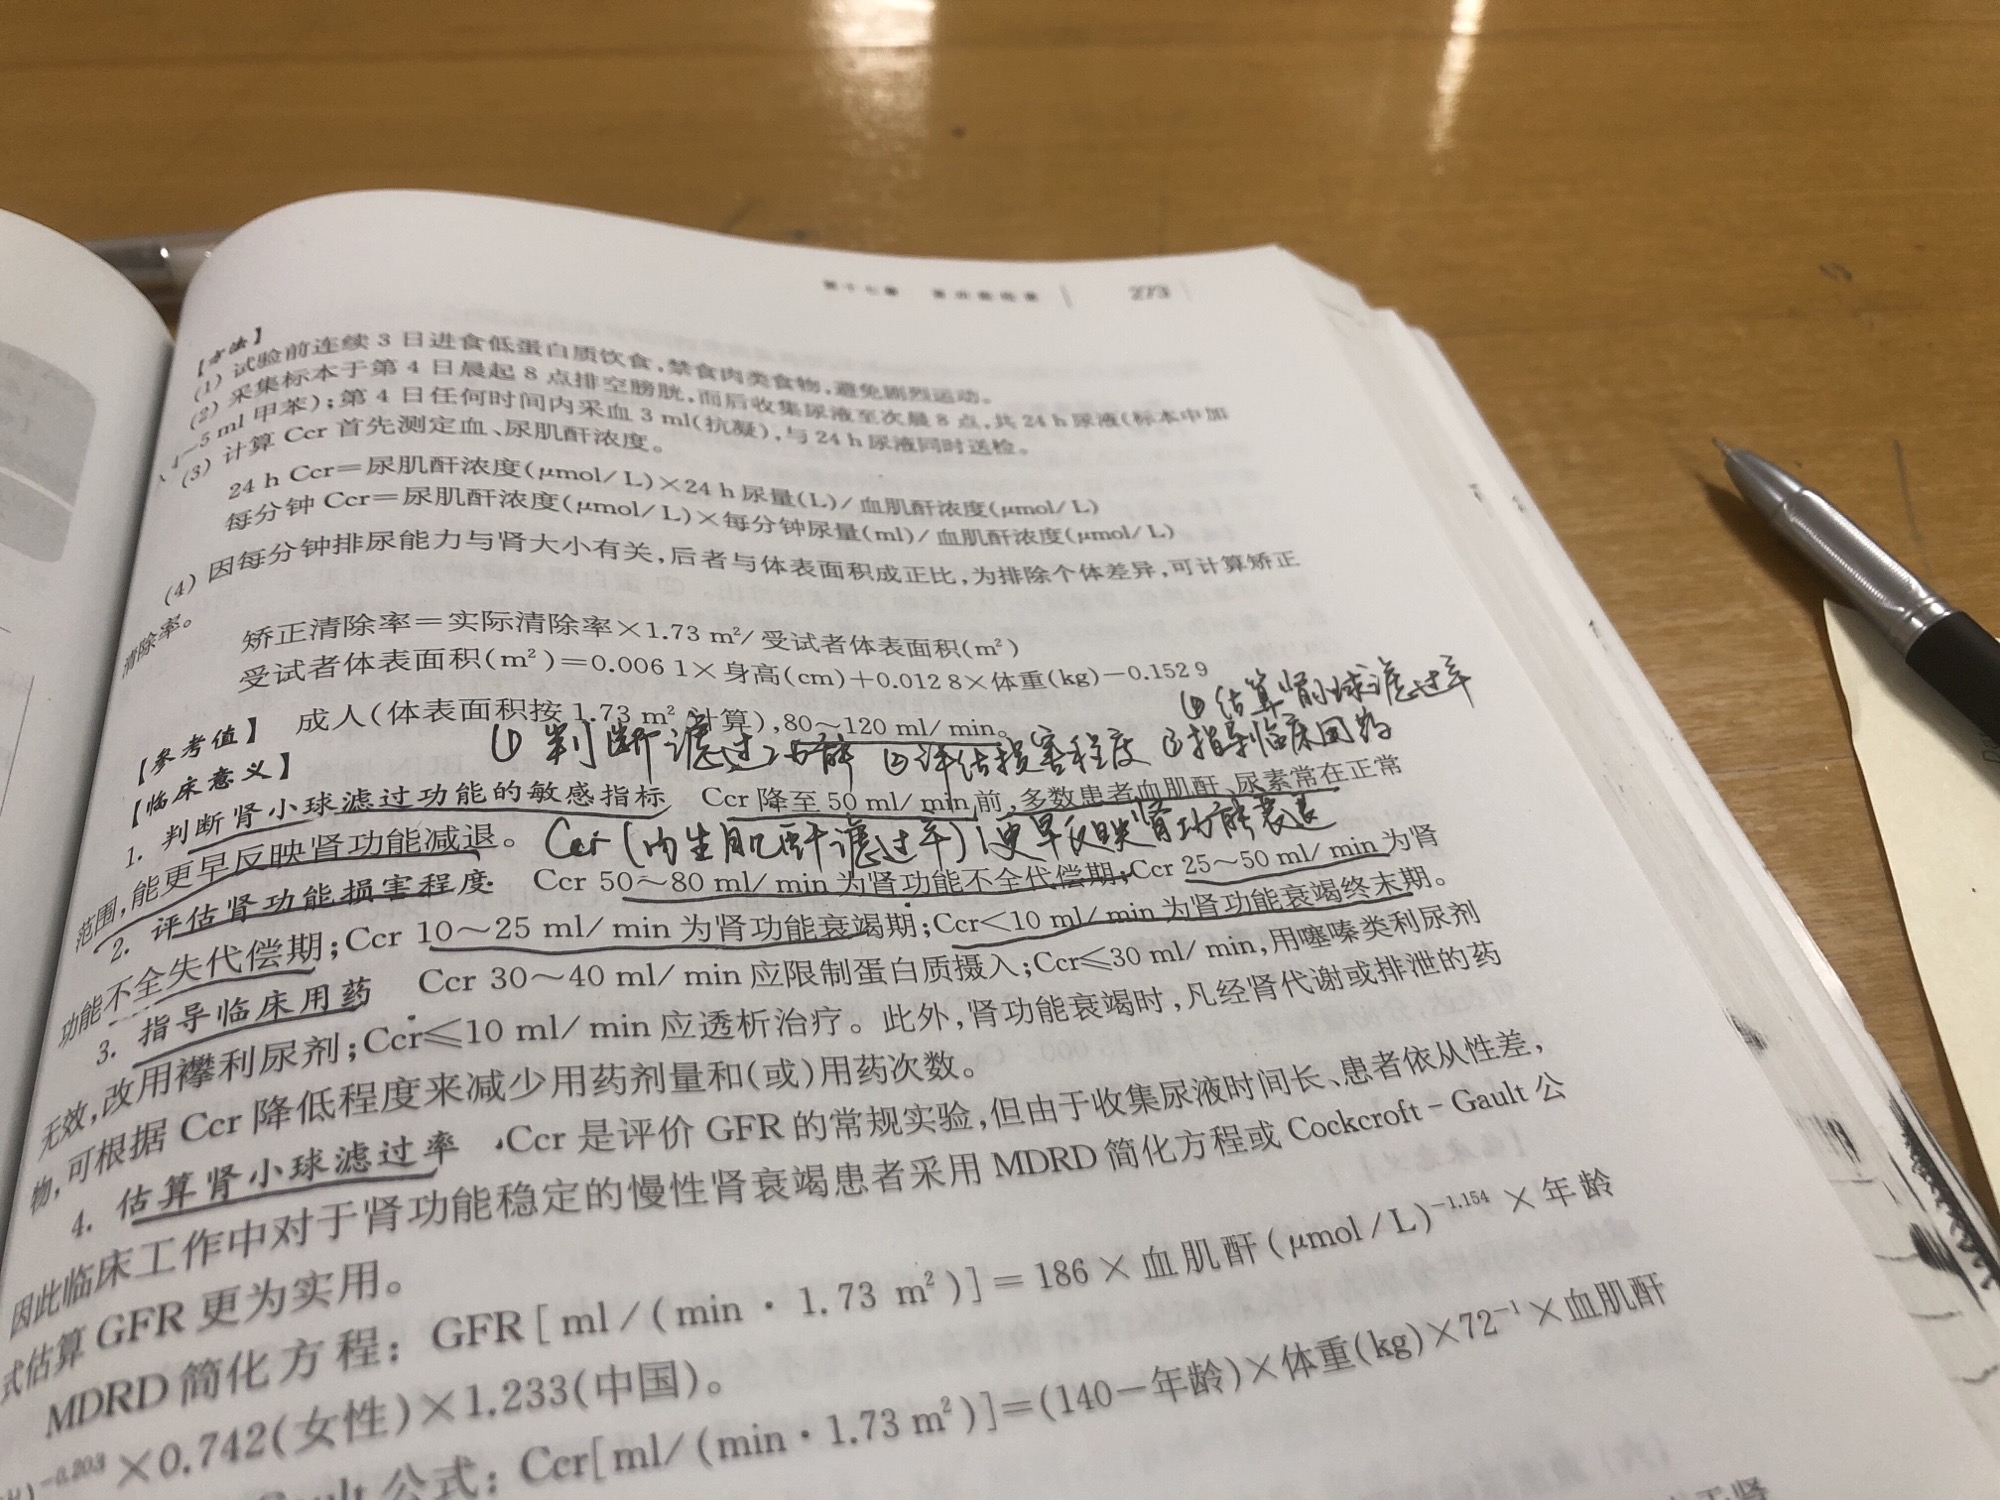 273
【方法】
(1) 试验前连续 3 日进食低蛋白质饮食,禁食肉类食物,避免剧烈运动。
(2) 采集标本于第 4 日晨起 8 点排空膀胱,而后收集尿液至次晨 8 点,共 24 h 尿液(标本中加
4~5 ml 甲苯);第 4 日任何时间内采血 3 ml(抗凝),与 24 h 尿液同时送检。
(3) 计算 Ccr 首先测定血、尿肌酐浓度。
24 h Ccr=尿肌酐浓度(μmol/L)×24 h 尿量(L)/血肌酐浓度(μmol/L)
每分钟 Ccr=尿肌酐浓度(μmol/L)×每分钟尿量(ml)/血肌酐浓度(μmol/L)
(4) 因每分钟排尿能力与肾大小有关,后者与体表面积成正比,为排除个体差异,可计算矫正
清除率。
矫正清除率=实际清除率×1.73 m²/受试者体表面积(m²)
受试者体表面积(m²)=0.006 1×身高(cm)+0.012 8×体重(kg)-0.152 9
④估算肾小球滤过率
【参考值】 成人(体表面积按 1.73 m² 计算),80~120 ml/min。
①判断滤过功能 ②评估损害程度 ③指导临床用药
【临床意义】
1. 判断肾小球滤过功能的敏感指标 Ccr 降至 50 ml/min 前,多数患者血肌酐、尿素常在正常
范围,能更早反映肾功能减退。
Ccr(内生肌酐滤过率):更早反映肾功能衰退
2. 评估肾功能损害程度 Ccr 50~80 ml/min 为肾功能不全代偿期;Ccr 25~50 ml/min 为肾
功能不全失代偿期;Ccr 10~25 ml/min 为肾功能衰竭期;Ccr<10 ml/min 为肾功能衰竭终末期。
3. 指导临床用药 Ccr 30~40 ml/min 应限制蛋白质摄入;Ccr≤30 ml/min,用噻嗪类利尿剂
无效,改用襻利尿剂;Ccr≤10 ml/min 应透析治疗。此外,肾功能衰竭时,凡经肾代谢或排泄的药
物,可根据 Ccr 降低程度来减少用药剂量和(或)用药次数。
4. 估算肾小球滤过率 Ccr 是评价 GFR 的常规实验,但由于收集尿液时间长、患者依从性差,
因此临床工作中对于肾功能稳定的慢性肾衰竭患者采用 MDRD 简化方程或 Cockcroft-Gault 公
式估算 GFR 更为实用。
MDRD 简化方程: GFR[ml/(min·1.73 m²)]=186×血肌酐(μmol/L)⁻¹·¹⁵⁴×年龄
⁻⁰·²⁰³×0.742(女性)×1.233(中国)。
公式: Ccr[ml/(min·1.73 m²)]=(140-年龄)×体重(kg)×72⁻¹×血肌酐